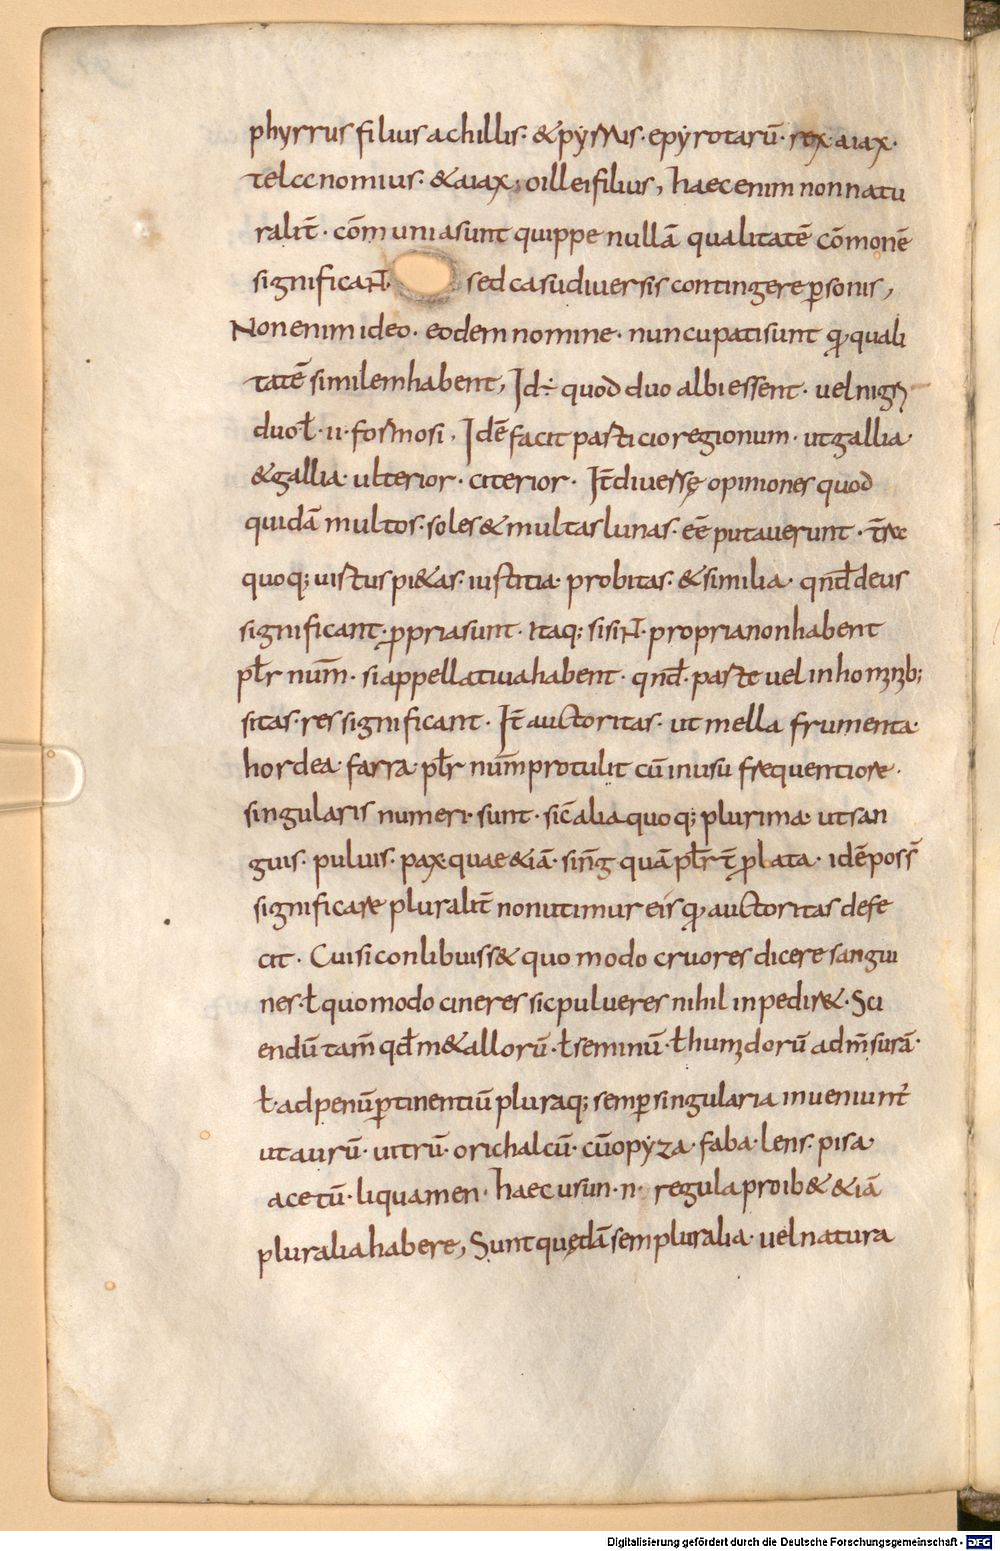 phyrrus filius achillis · & pẏrrus · epẏrotarū · rex · aiax ·
telccnomius · & aiax ; oillei filius , haec enim non natu
ralit̄ · cōm uni a sunt quippe nullā qualitatē cōmonē
significaNT · sed casu diuersis contingere ꝑsonis ,
Non enim ideo · eodem nomine · nuncupati sunt q · quali
tatē similem habent , Id ÷ quod duo albi essent · uel nigr
duo ł · ii · formosi , Idē facit particio regionum · ut gallia ·
& gallia · ulterior · citerior · It̄ diuersę opiniones quod
quidā multos · soles & multas luna s · eē putauerunt ·
quoq; uirtus pi&as · iustitia · probitas · & similia · qnđ deus
significant · ꝓpria sunt · Itaq; si siNT · propria non habent
płr num̄ · si appellatiua habent · qnđ · parte uel in ho
sitas · res significant · It̄ auctoritas · ut mella frumenta ·
hordea · farra · płr num̄ protulit cū in usu frequentiore ·
singularis numeri · sunt · sic̄ alia quoq; plurima · ut san
guis · puluis · pax · quae &iā · sinḡ quā płr t̄ ꝓlata · idē poss̄
significare pluralit̄ non utimur eis q auctoritas defe
cit · Cui si conlibuiss& quo modo cruores dicere sangui
nes · ł quo modo cineres sic pulueres nihil inpedir& · Sci
endū tam̄ qđ m&allorū · ł seminū · ł humdorū ad m̄surā ·
ł · ad penū ꝑtinentiū pluraq; semꝑ singularia inueniunt̄
ut aurū · uitrū · orichalcū · cū opẏza · faba · lens · pisa ·
acetū · liquamen · haec usun · n · regula proib& &iā
pluralia habere , Sunt quędā sem pluralia · uel natura
Digitalisierung gefördert durch die Deutsche Forschungsgemeinschaft - DFG